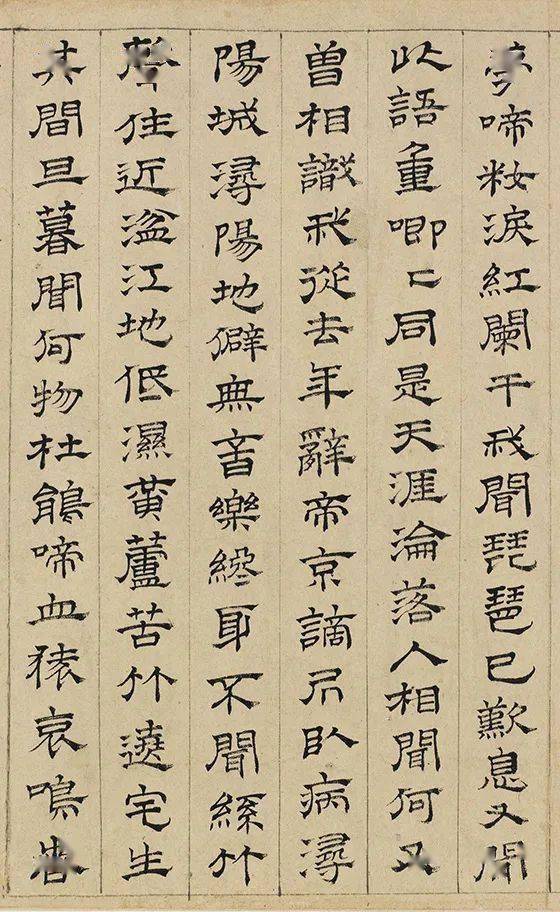 夢啼籹淚紅闌干我聞琵琶已歎息又聞
此語重唧〻同是天涯淪落人相聞何
曾相識我從去年辭帝京謫居臥病潯
陽城潯陽地僻無音樂不聞絲竹
聲住近湓江地低濕黃蘆苦竹遶宅生
其間旦暮聞何物杜鵑啼血猿哀鳴春